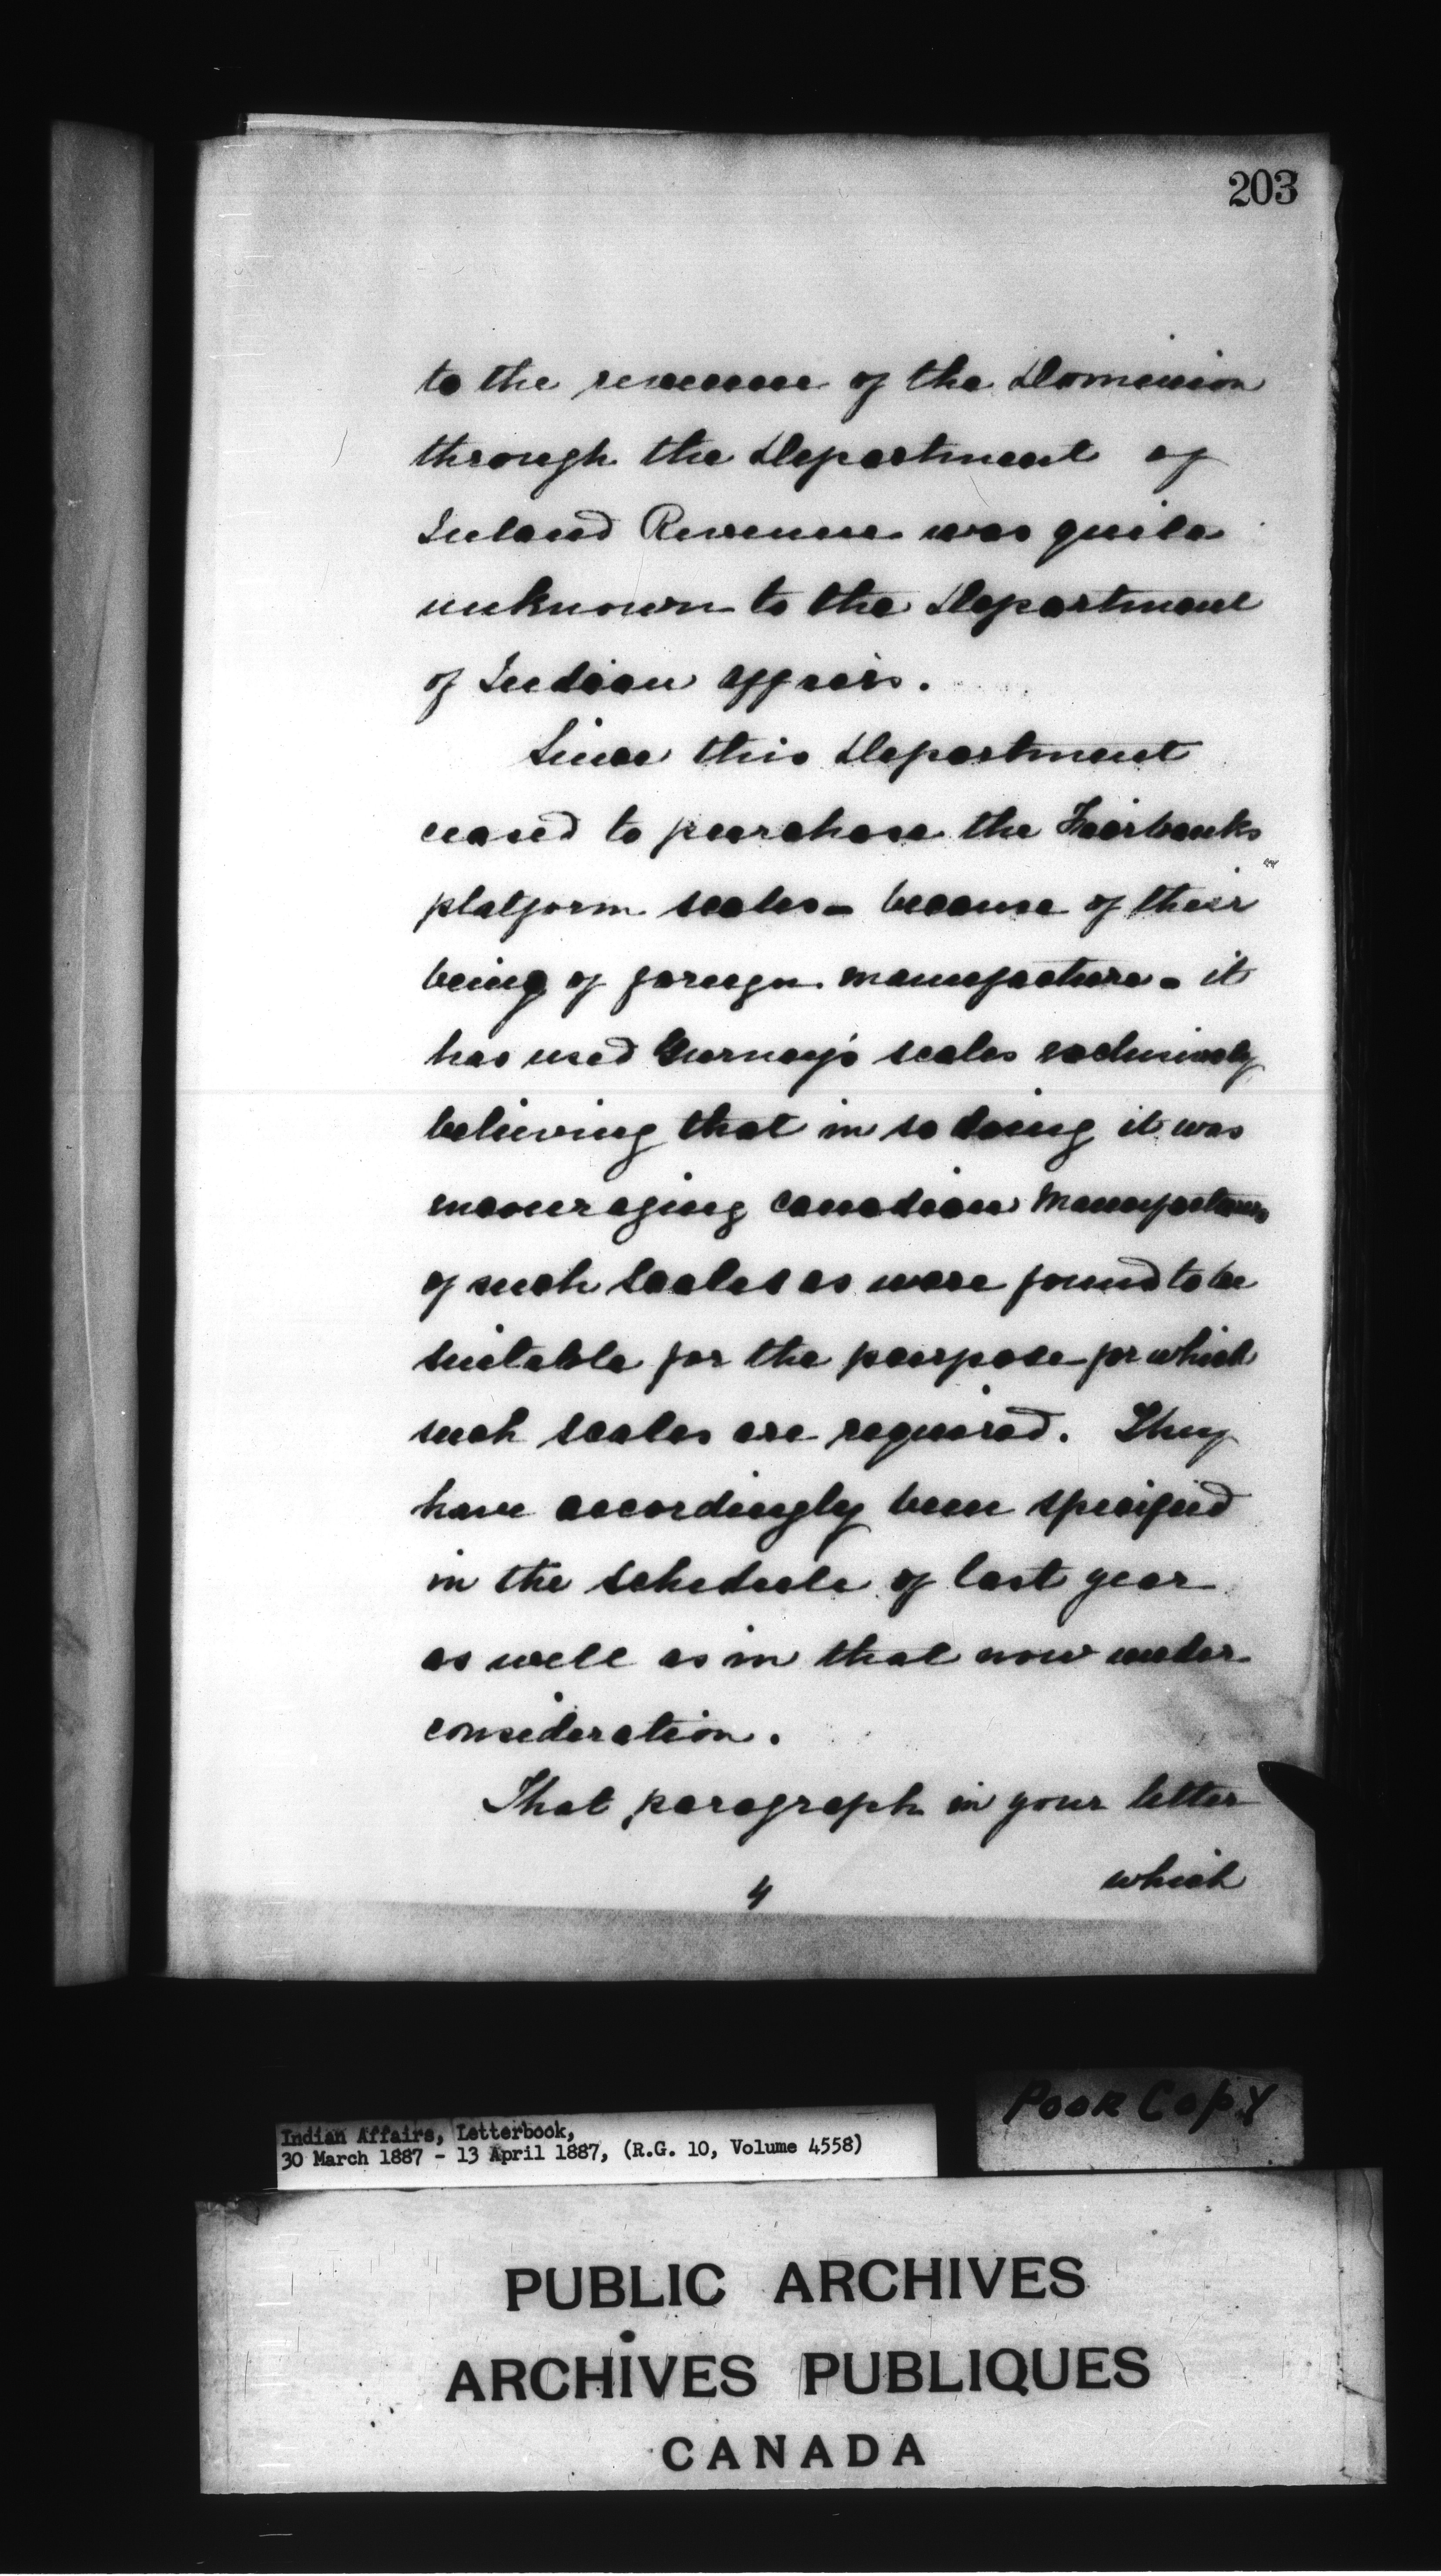 203
to the revenue of the Dominion
through the Department of
Inland Revenue was quite
unknown to the Department
of Indian affairs.
Since this Department
ceased to purchase the Fairbanks
platform scales - because of their
being of foreign manufacture - it
has used Gurney's scales exclusively
believing that in so doing it was
encouraging Canadian Manufacture
of such scales as were found to be
suitable for the purpose for which
such scales are required. They
have accordingly been specified
in the schedule of last year
as well as in that now under
consideration.
That paragraph in your letter
4 which
POOR COPY
Indian Affairs, Letterbook,
30 March 1887 - 13 April 1887, (R.G. 10, Volume 4558)
PUBLIC ARCHIVES
ARCHIVES PUBLIQUES
CANADA